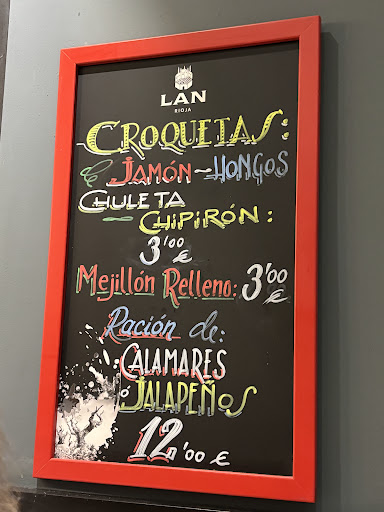 LAN
RIOJA
CROQUETAS:
JAMÓN~HONGOS
CHULETA
CHIPIRÓN:
3'00 €
Mejillón Relleno: 3'00 €
Ración de:
CALAMARES
o JALAPEÑOS
12'00 €